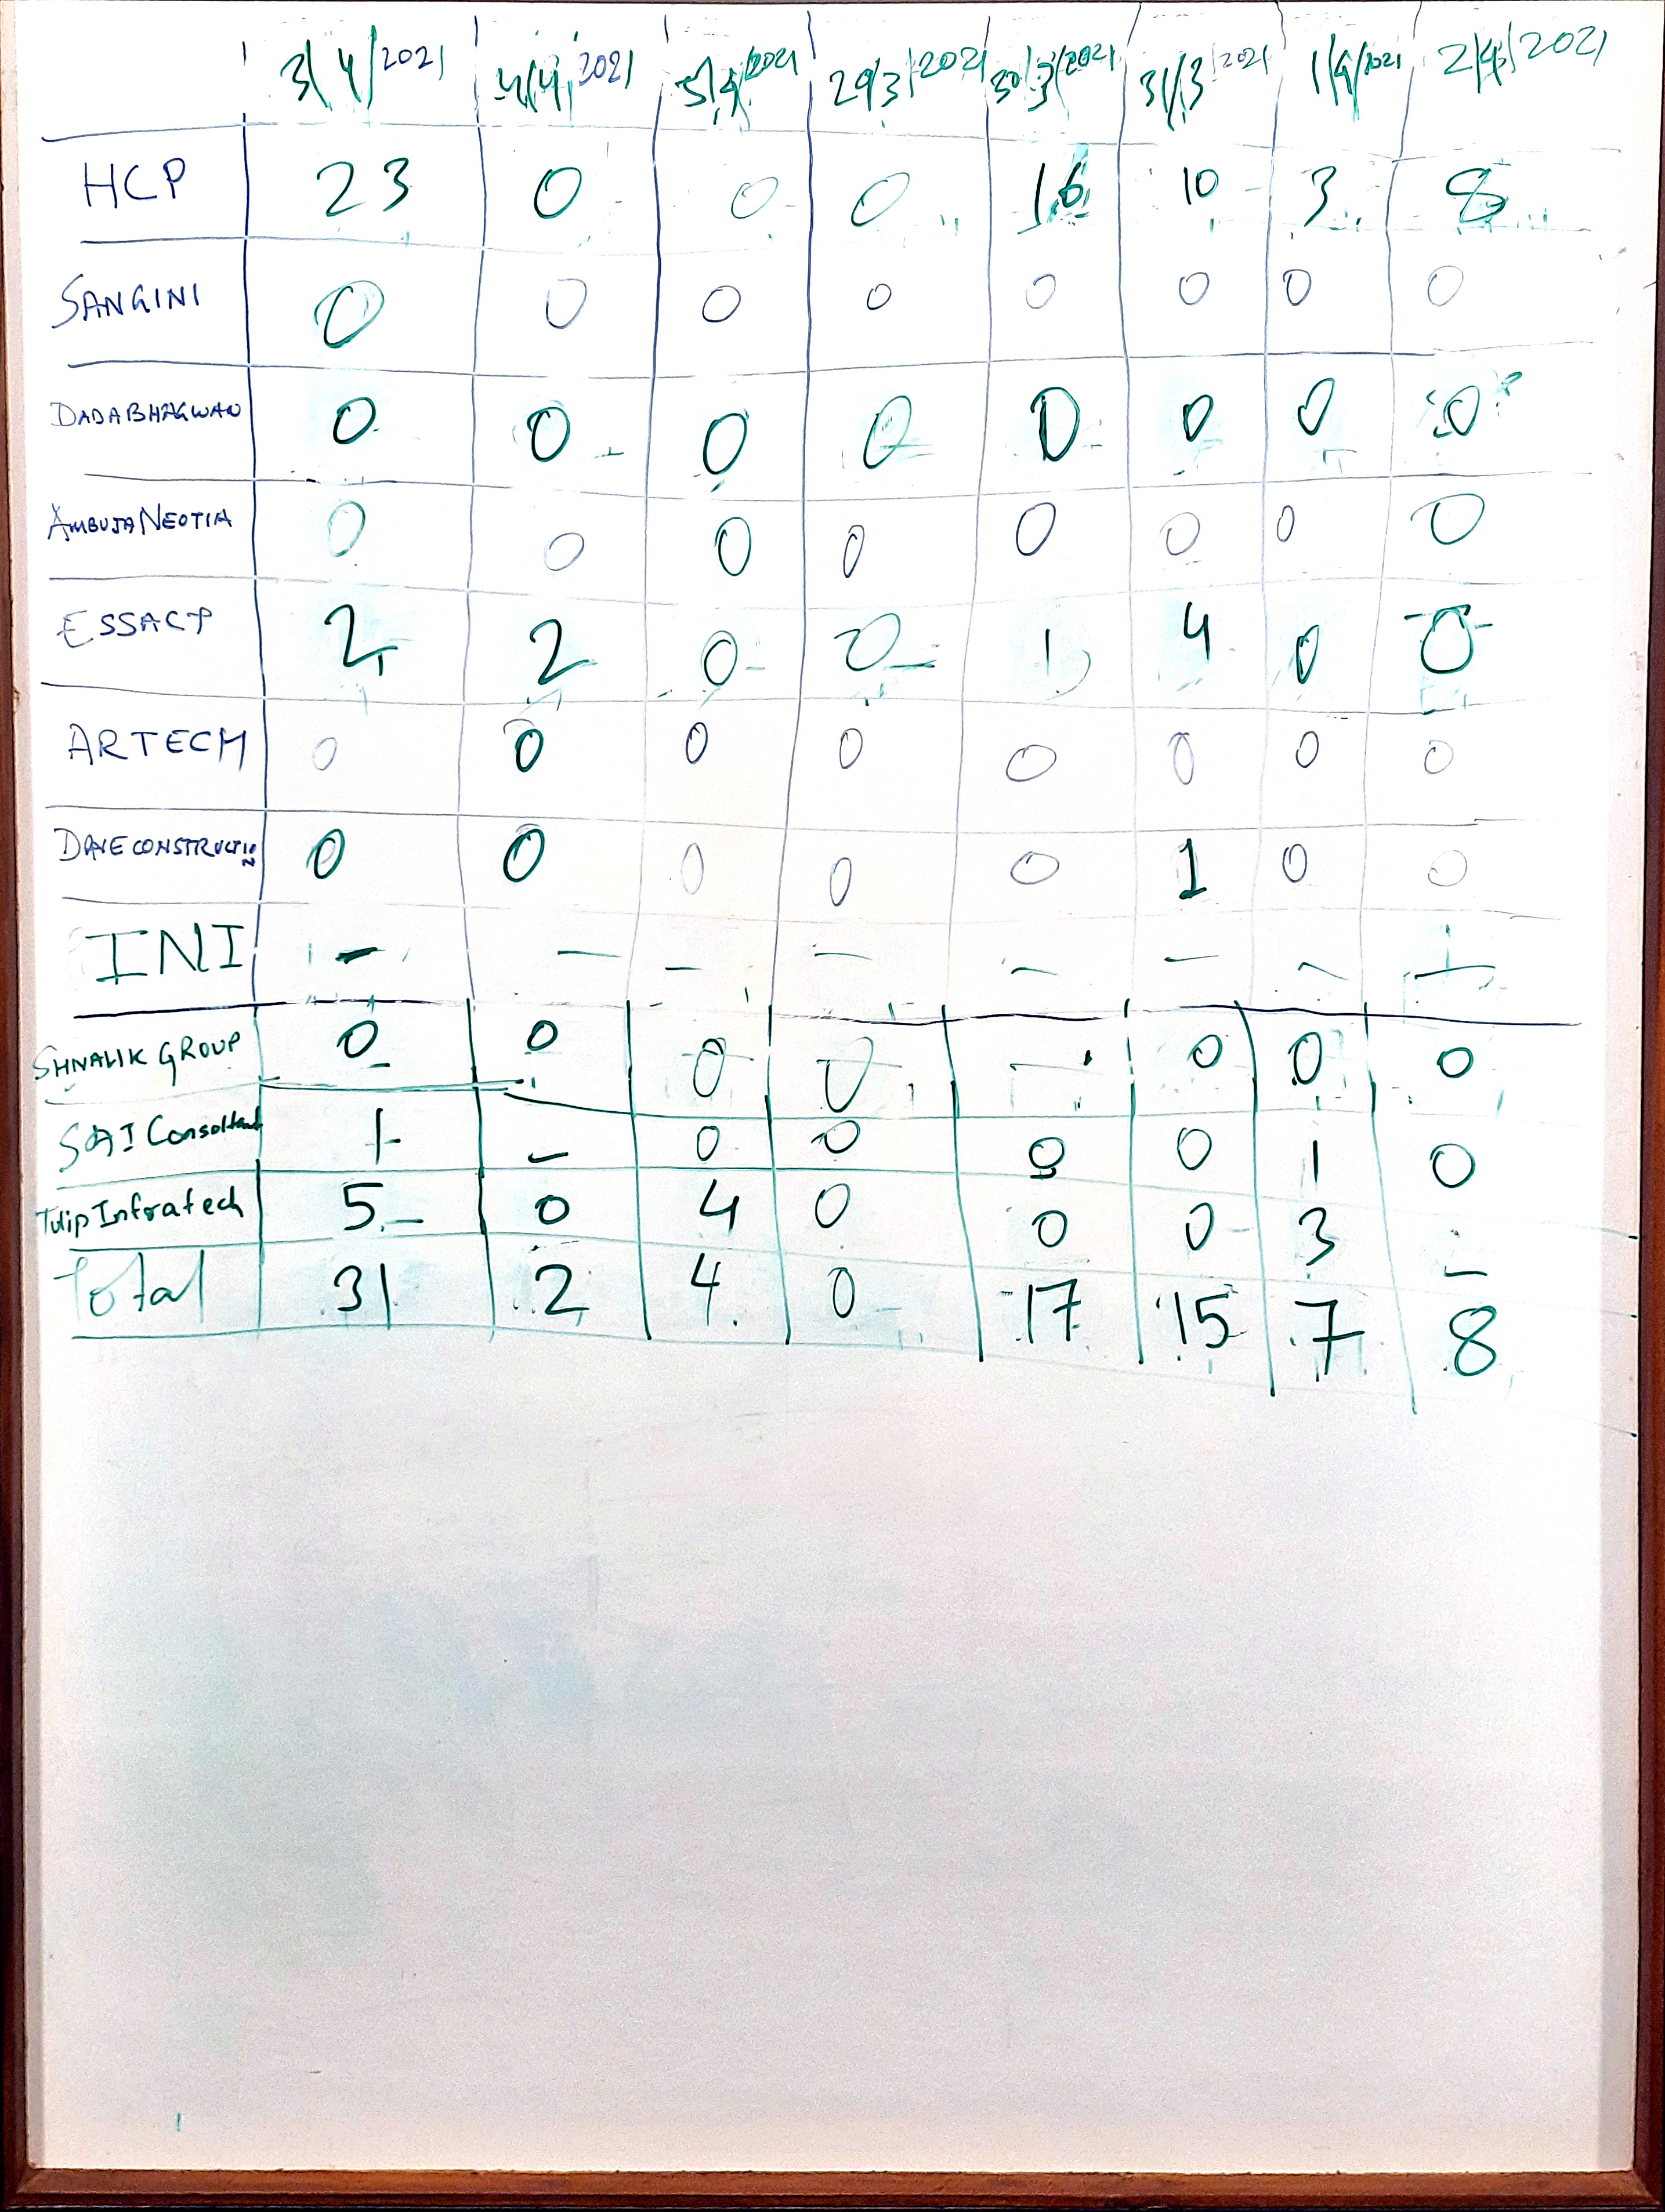 3/4/2021 4/4/2021 5/4/2021 29/3/2021 30/3/2021 31/3/2021 1/4/2021 2/4/2021
HCP 23 0 0 0 16 10 3 8
SANGINI 0 0 0 0 0 0 0 0
DADABHAGWAN 0 0 0 0 0 0 0 0
AMBUJANEOTIA 0 0 0 0 0 0 0 0
ESSACT 2 2 0 0 1 4 0 0
ARTECH 0 0 0 0 0 0 0 0
DAVECONSTRUCTION 0 0 0 0 0 1 0 0
INI - - - - - - - -
SHIVALIK GROUP 0 0 0 0 - 0 0 0
SAI Consoltant 1 - 0 0 0 0 1 0
Tulip Infratech 5 0 4 0 0 0 3 -
Total 31 2 4 0 17 15 7 8